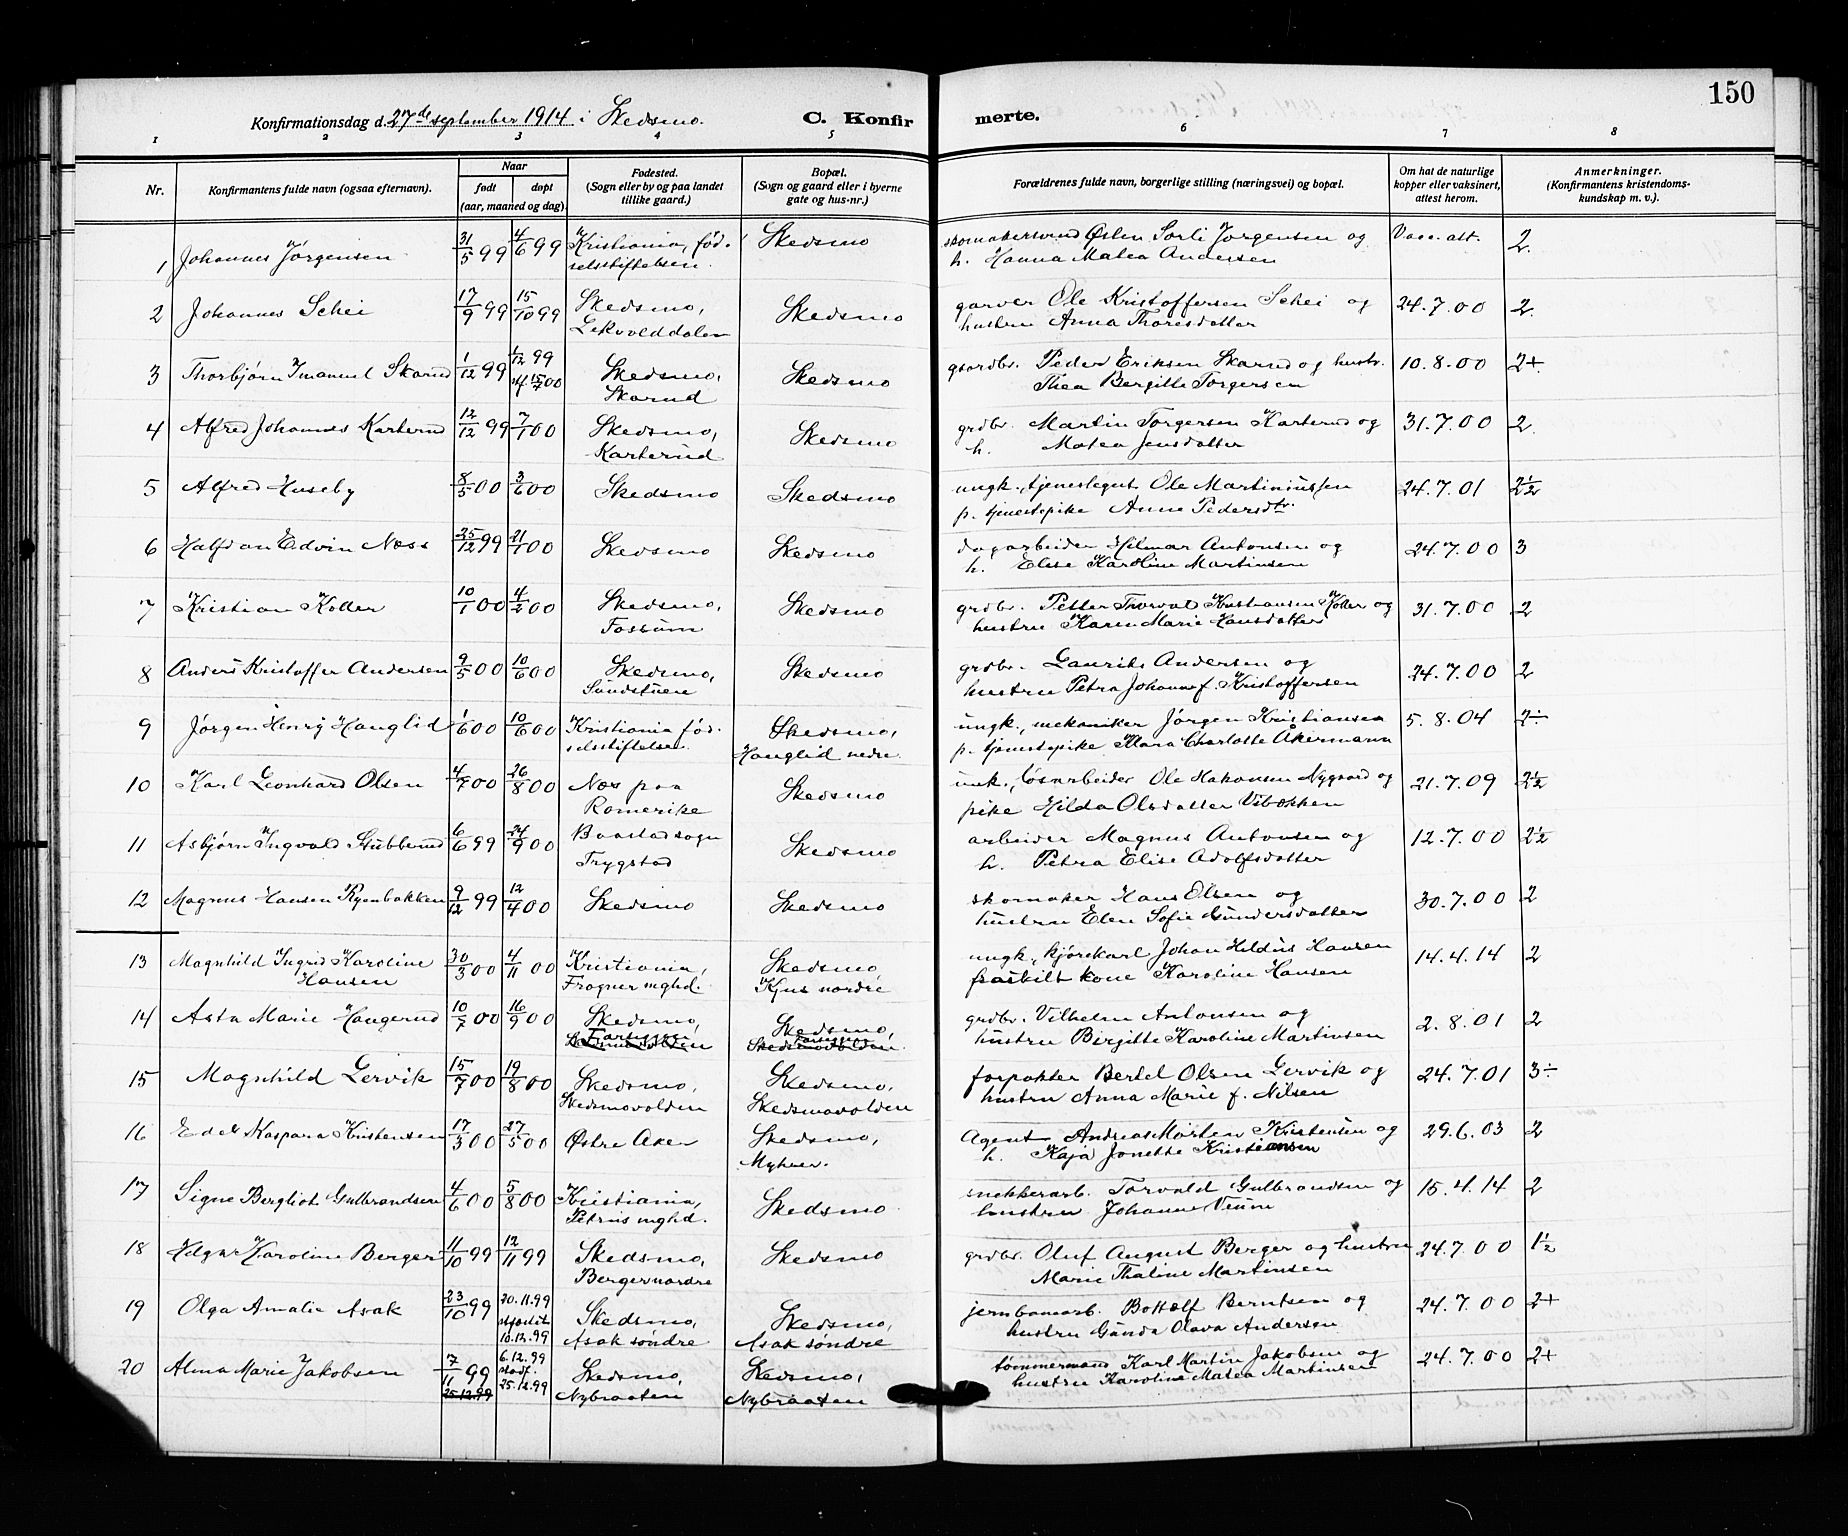 150
Konfirmationsdag d. 27de september 1914 i Skedsmo. C. Konfirmerte.
1 2 3 4 5 6 7 8
Nr. Konfirmantens fulde navn (ogsaa efternavn). Naar født døpt (aar, maaned og dag). Fødested. (Sogn eller by og paa landet tillike gaard.) Bopæl. (Sogn og gaard eller i byerne gate og hus-nr.) Forældrenes fulde navn, borgerlige stilling (næringsvei) og bopæl. Om hat de naturlige kopper eller vaksinert, attest herom. Anmerkninger. (Konfirmantens kristendomskundskap m. v.).
1 Johannes Jørgensen 31/5 99 4/6 99 Kristiania, fød- Skedsmo skomakersvend Østen Sørli Jørgensen og Vacc. att. 2.
selsstiftelsen. h. Hanna Matea Andersen
2 Johannes Schei 17/9 99 15/10 99 Skedsmo, Skedsmo garver Ole Kristoffersen Schei og 24.7.00 2.
Lekvolddalen hustru Anna Thoresdatter
3 Thorbjørn Imanuel Skarud 1/12 99 1/12 99 Skedsmo, Skedsmo gaardbr. Peder Eriksen Skarud og hustr. 10.8.00 2+
15/7 00 Skarud Thea Bergitte Torgersen
4 Alfred Johannes Karterud 12/12 99 7/1 00 Skedsmo, Skedsmo grdbr. Martin Torgersen Karterud og 31.7.00 2.
Karterud h. Matea Jensdatter
5 Alfred Huseby 8/5 00 3/6 00 Skedsmo Skedsmo ungk., tjenestegut Ole Martiniussen 24.7.01 2½
p. tjenestepike Anne Pedersdtr.
6 Halfdan Edvin Næss 25/12 99 21/1 00 Skedsmo Skedsmo dagarbeider Hilmar Antonsen og 24.7.00 3
h. Elise Karoline Martinsen
7 Kristian Koller 10/1 00 4/2 00 Skedsmo, Skedsmo grdbr. Petter Thorvald Kristiansen Koller og 31.7.00 2
Fossum hustru Karen Marie Hansdatter
8 Anders Kristoffer Andersen 9/5 00 10/6 00 Skedsmo, Skedsmo grdbr. Laurits Andersen og 24.7.00 2
Sundstuen hustru Petra Johanne f. Kristoffersen
9 Jørgen Henry Hanglid 1/6 00 10/6 00 Kristiania fød- Skedsmo, ungk., mekaniker Jørgen Kristiansen 5.8.04 2÷
selsstiftelsen. Hanglid nedre p. tjenestepike Klara Charlotte Åkermann
10 Karl Leonhard Olsen 4/7 00 26/8 00 Næs paa Skedsmo unk., løsarbeider Ole Hakonsen Nygaard og 21.7.09 2½
Romerike pike Hilda Olsdatter Vibakken
11 Asbjørn Ingvald Stubberud 6/6 99 24/9 00 Baastad sogn Skedsmo arbeider Magnus Antonsen og 12.7.00 2½
Trygstad h. Petra Elise Adolfsdatter
12 Magnus Hansen Ryenbakken 9/12 99 12/4 00 Skedsmo Skedsmo skomaker Hans Olsen og 30.7.00 2
hustru Elen Sofie Gundersdatter
13 Magnhild Ingrid Karoline 30/3 00 4/11 00 Kristiania, Skedsmo ungk., kjørekarl Johan Hildus Hansen 14.4.14 2
Hansen Frogner mghd. Kjus nordre fraskilt kone Karoline Hansen
14 Asta Marie Haugerud 10/7 00 16/9 00 Skedsmo, Skedsmo, grdbr. Vilhelm Antonsen og 2.8.01 2
Skedsmovolden Skedsmovolden hustru Birgitte Karoline Martinsen
15 Magnhild Lervik 15/7 00 19/8 00 Skedsmo, Skedsmo, forpakter Bertel Olsen Lervik og 24.7.01 3÷
Skedsmovolden Skedsmovolden hustru Anna Marie f. Nilsen
16 Edel Kaspara Kristensen 17/3 00 27/5 00 Østre Aker Skedsmo, Agent Andreas Morten Kristensen og 29.6.03 2
Myhrer. h. Kaja Jonette Kristiansen
17 Signe Bergliot Gulbrandsen 4/6 00 5/8 00 Kristiania, Skedsmo snekkerarb. Torvald Gulbrandsen og 15.4.14 2
Petrus mghd. hustru Johanne Veum
18 Helga Karoline Berger 11/10 99 12/11 99 Skedsmo, Skedsmo grdbr. Oluf August Berger og hustru 24.7.00 1½
Berger nordre Marie Thaline Martinsen
19 Olga Amalie Asak 23/10 99 20.11.99 Skedsmo, Skedsmo, jernbanearb. Bottolf Berntsen og 24.7.00 2+
stadf. 10.12.99 Asak søndre Asak søndre hustru Gunda Olava Andersen
20 Alma Marie Jakobsen 7/11 99 6.12.99 Skedsmo, Skedsmo, tømmermand Karl Martin Jakobsen og 24.7.00 2+
25.12.99 stadf. 25.12.99 Nybraaten Nybraaten hustru Karoline Matea Martinsen